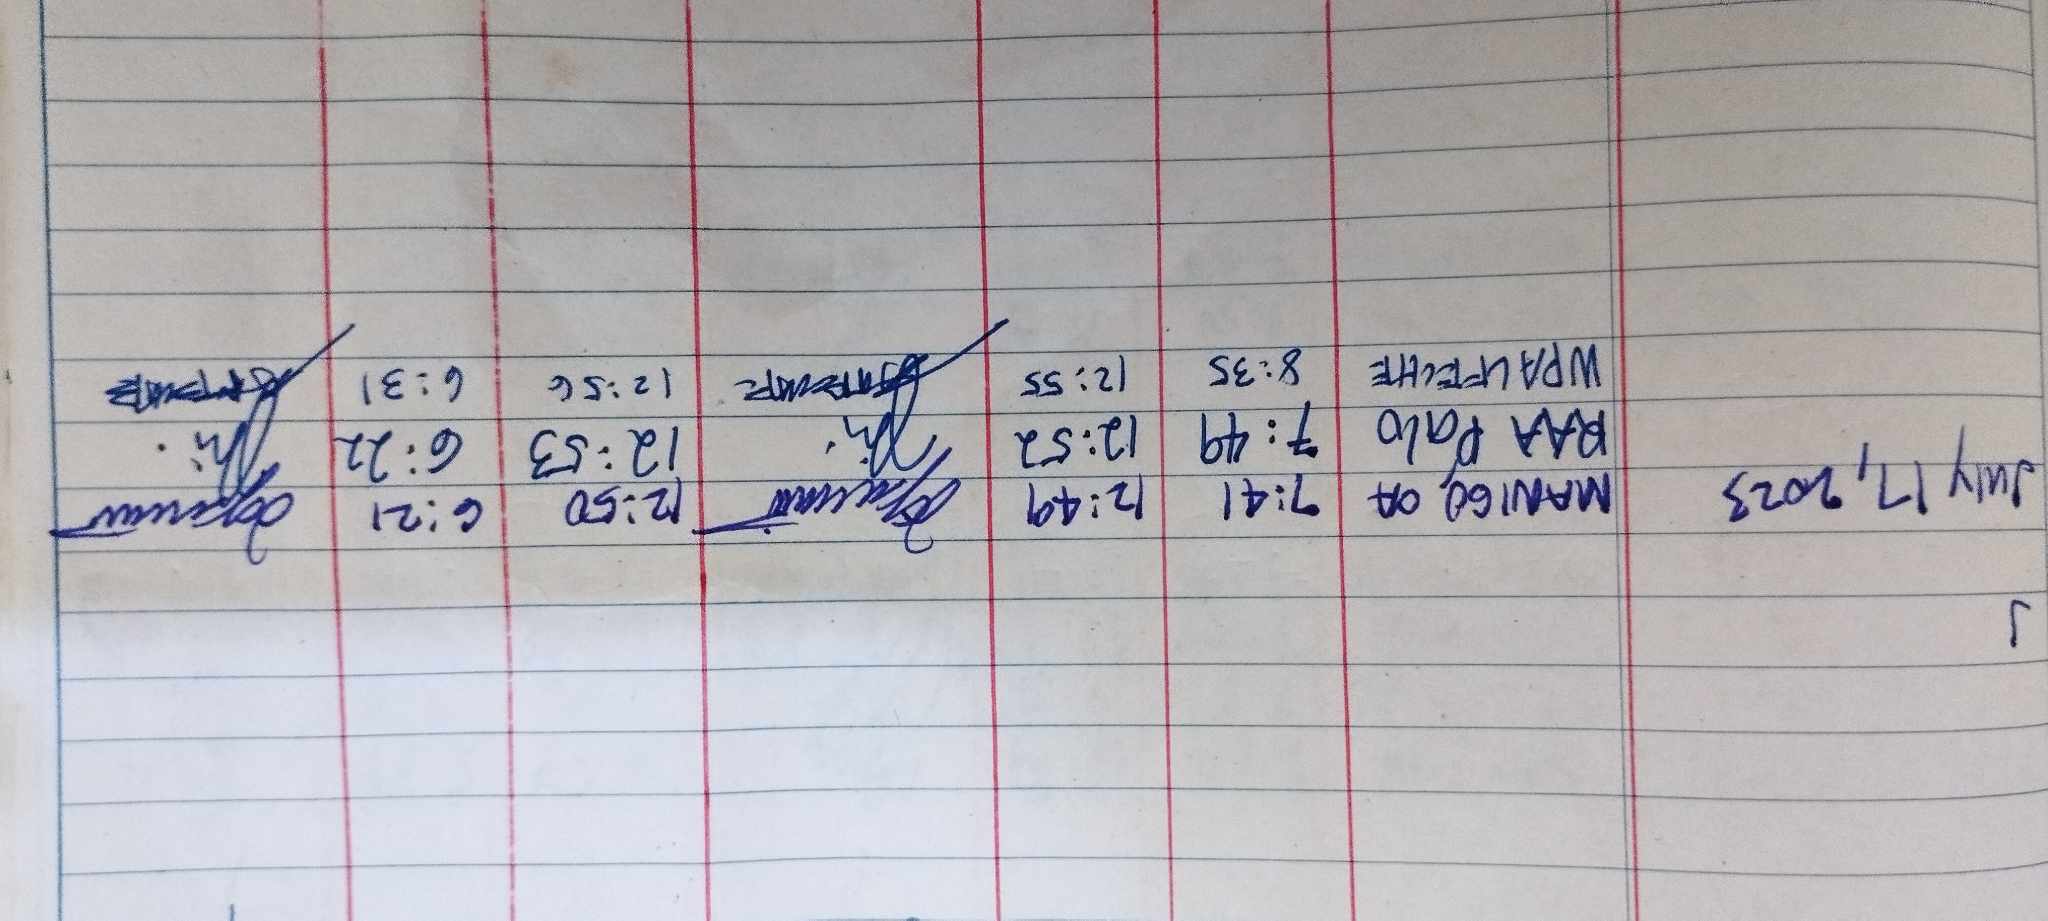 July 17, 2023 MANIGO, OA 7:41 12:49 12:50 6:21
RAA Palo 7:49 12:52 12:53 6:22
WPALFECHE 8:35 12:55 12:56 6:31